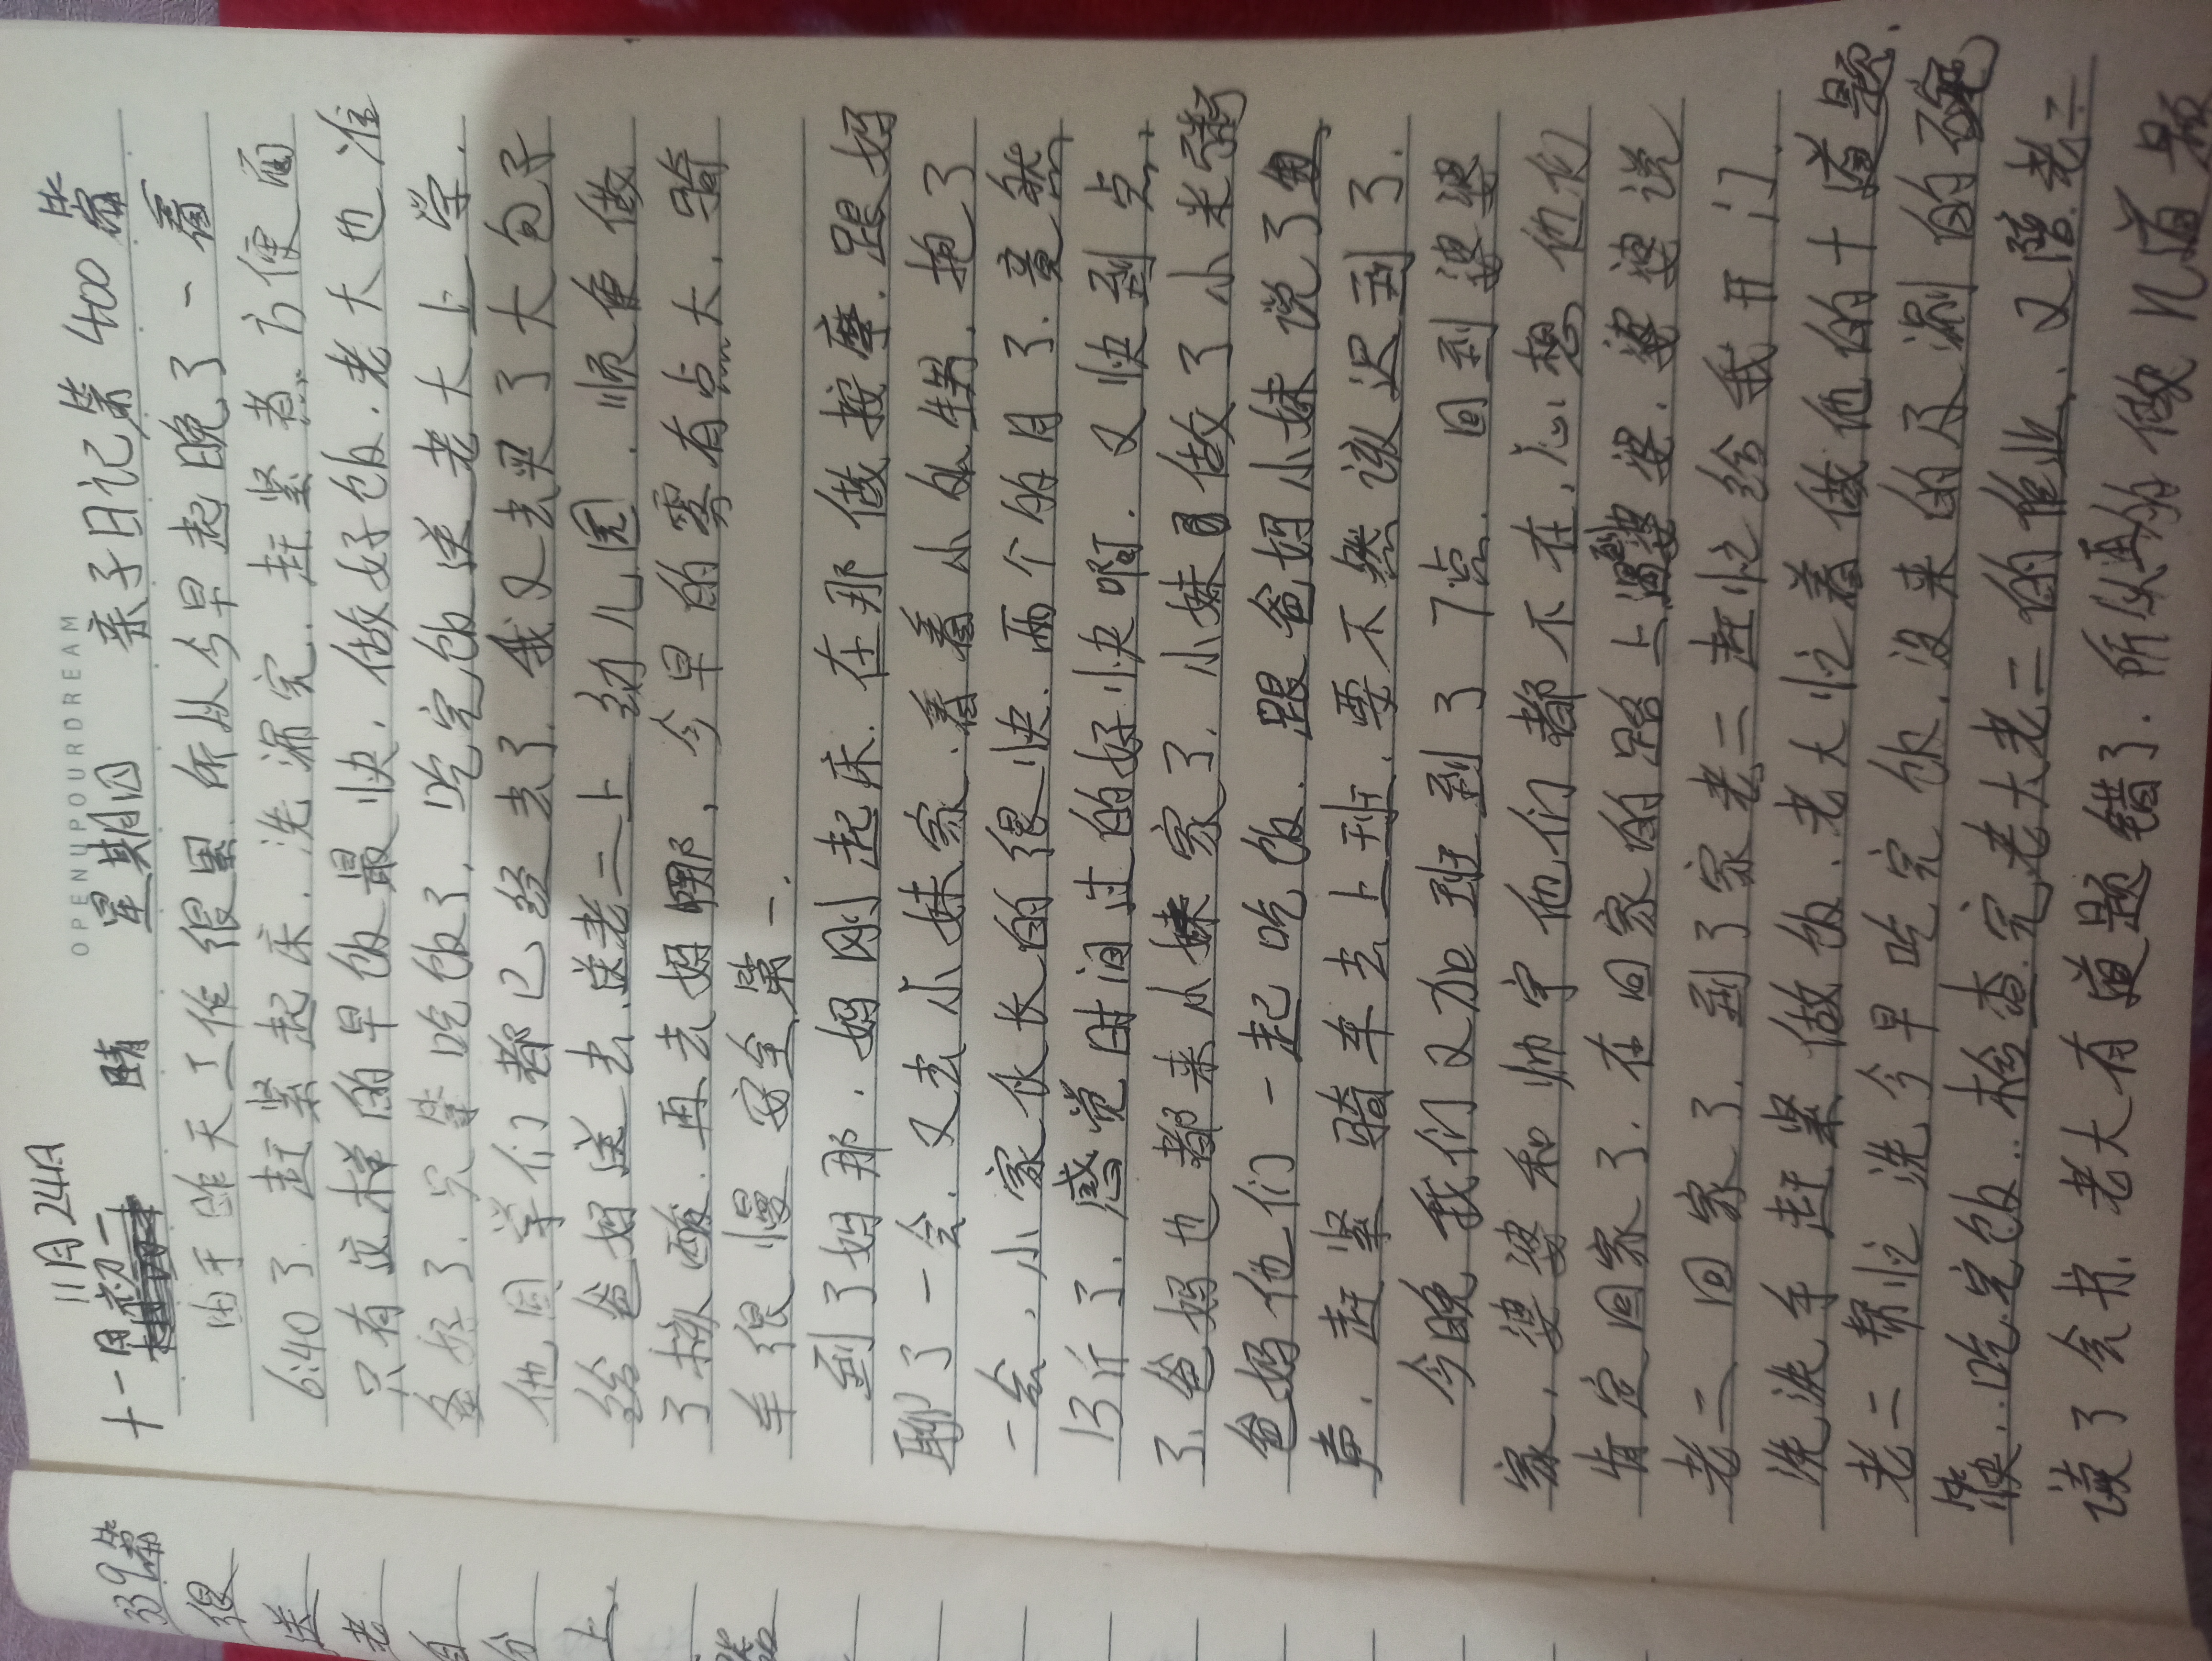 OPENUPYOURDREAM
11月24日
十一月初一 晴 星期四 亲子日记第400篇
由于昨天工作很累.所以今早起晚了一看
6:40了.赶紧起床.洗漱完.赶紧煮.方便面
只有这样的早饭最快.做好饭.老大也准
备好了.只管吃饭了.吃完饭送老大上学.
他同学们都已经去了.我又去买了大包子
给爸妈送去.送老二上幼儿园.顺便做
了核酸.再去妈那,今早的雾有点大,骑
车很慢安全第一.
到了妈那.妈刚起床.在那做按摩.跟妈
聊了一会.又去小妹家.看看小外甥.抱了
一会,小家伙长的很快.两个的月了.竟然
13斤了.感觉时间过的好快啊.又快到点
了.爸妈也都来小妹家了.小妹做了小米粥
爸妈他们一起吃饭.跟爸妈小妹说了
声.赶紧骑车去上班.要不然该迟到了.
今晚我们又加班到了7点.回到婆婆
家,婆婆和帅宇他们都不在,心想他们
肯定回家了.在回家的路上遇到婆婆.婆婆说
老二回家了.到了家老二赶忙给我开门.
洗洗手赶紧做饭.老大忙着做他的十道题.
老二帮忙洗今早吃完饭.没来的及涮的碗
筷..吃完饭.检查完老大老二的作业.又陪老二
读了会书.老大有道题错了.所以再做几道题
339篇
很
送
老
自
分
上